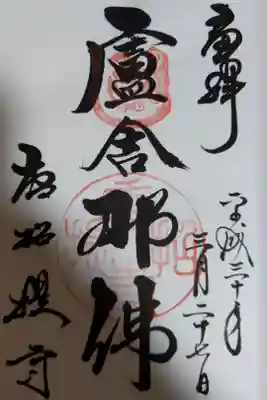 奉拝
平成三十年
三月二十七日
盧舎那佛
唐招提寺